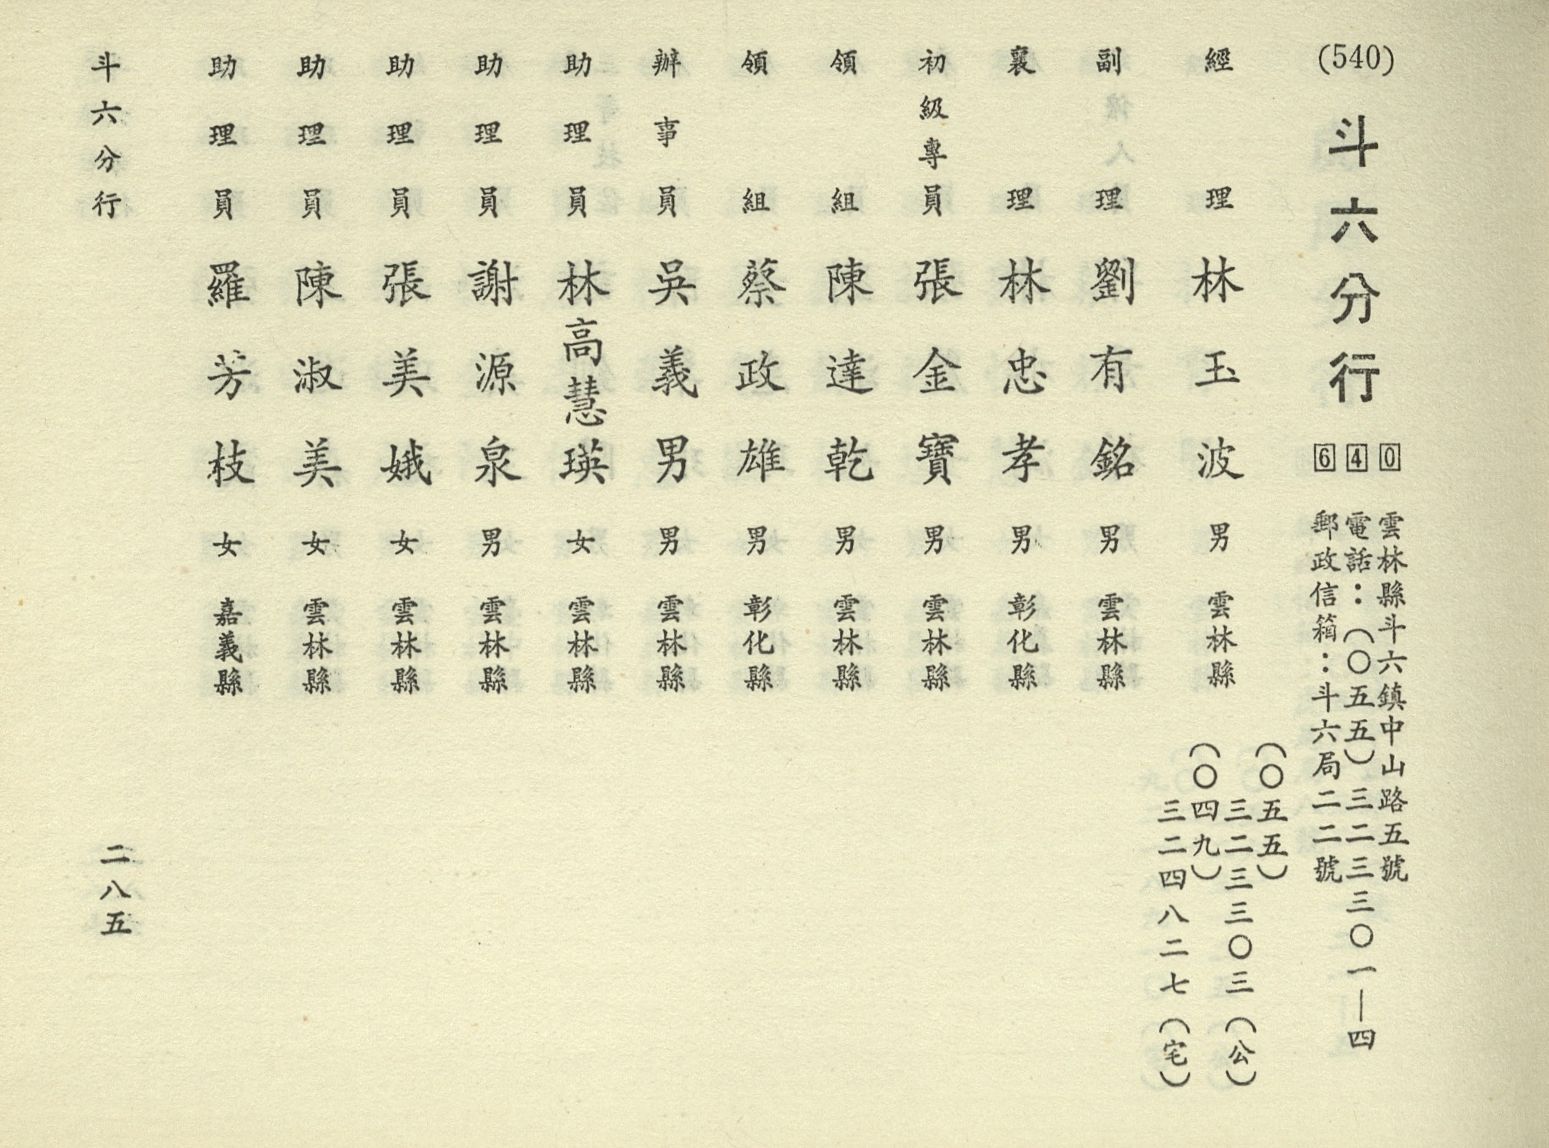 (540)
斗六分行
640
雲林縣斗六鎮中山路五號
電話：(〇五五)三二三三〇一—四
郵政信箱：斗六局二二號
經理 林玉波 男 雲林縣
(〇五五)
三二三三〇三(公)
(〇四九)
三二四八二七(宅)
副理 劉有銘 男 雲林縣
襄理 林忠孝 男 彰化縣
初級專員 張金寶 男 雲林縣
領組 陳達乾 男 雲林縣
領組 蔡政雄 男 彰化縣
辦事員 吳義男 男 雲林縣
助理員 林高慧瑛 女 雲林縣
助理員 謝源泉 男 雲林縣
助理員 張美娥 女 雲林縣
助理員 陳淑美 女 雲林縣
助理員 羅芳枝 女 嘉義縣
斗六分行
二八五